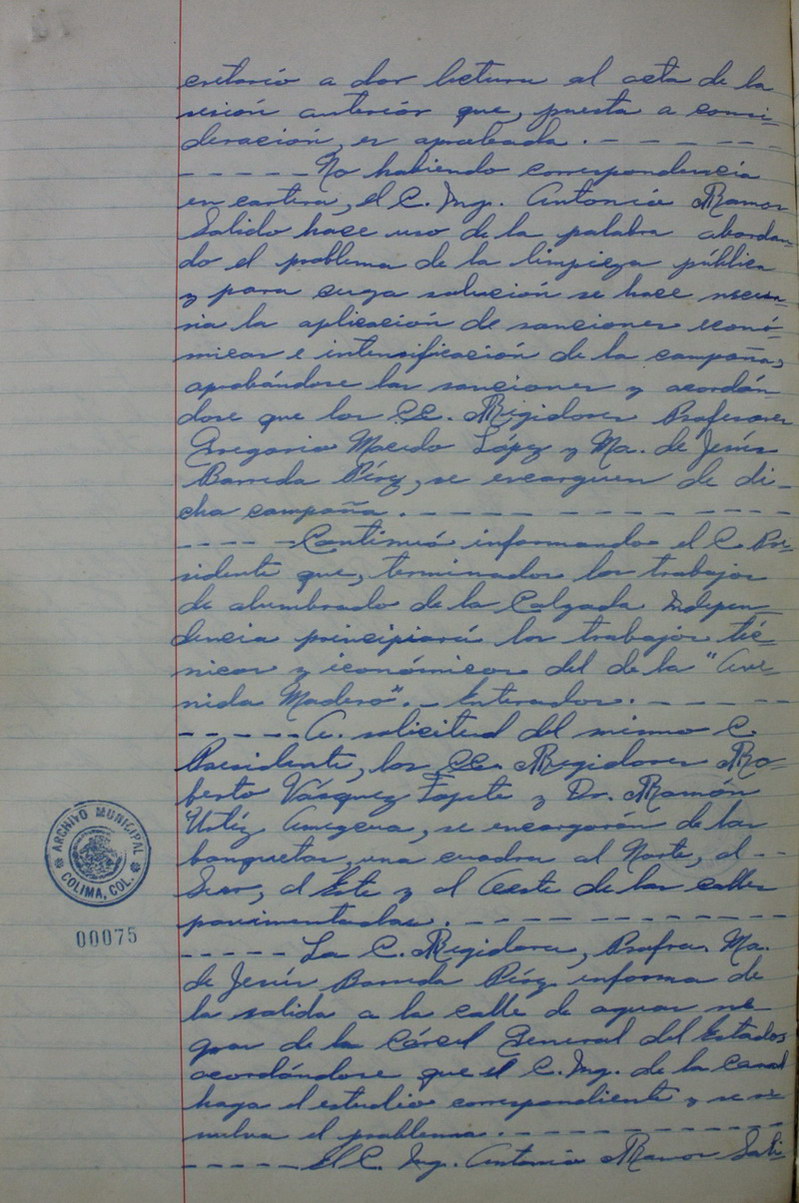 cretario a dar lectura al acta de la
sesión anterior que, puesta a consi-
deración, es aprobada. - - - - - -
- - - - - No habiendo correspondencia
en cartera, el C. Ing. Antonio Ramos
Salido hace uso de la palabra abordan-
do el problema de la limpieza pública
y para cuya solución se hace necesa-
ria la aplicación de sanciones econó-
micas e intensificación de la campaña,
aprobándose las sanciones y acordán
dose que los CC. Regidores Profesores
Gregorio Macedo López y Ma. de Jesús
Barreda Pérez, se encarguen de di-
cha campaña. - - - - - - - - -
- - - - - Continuó informando el C. Pre-
sidente que, terminados los trabajos
de alumbrado de la Calzada Indepen
dencia principiará los trabajos téc-
nicos y económicos del de la "Ave-
nida Madero". - Enterados. - - - - -
- - - - - A solicitud del mismo C.
Presidente, los CC. Regidores Ro-
berto Vázquez y Dr. Ramón
, se encargarán de las
banquetas, una cuadra al Norte, al - -
Sur, al Este y al Oeste de las calles
pavimentadas. - - - - - - - - - -
- - - - - La C. Regidora, Profra. Ma.
de Jesús Barreda Pérez informa de
la salida a la calle de aguas ne
gras de la Cárcel General del Estado,
acordándose que el C. Ing. de la Canal
haga el estudio correspondiente y se re
suelva el problema. - - - - - - - -
- - - - - El C. Ing. Antonio Ramos Sali-
ARCHIVO MUNICIPAL
COLIMA, COL.
00075